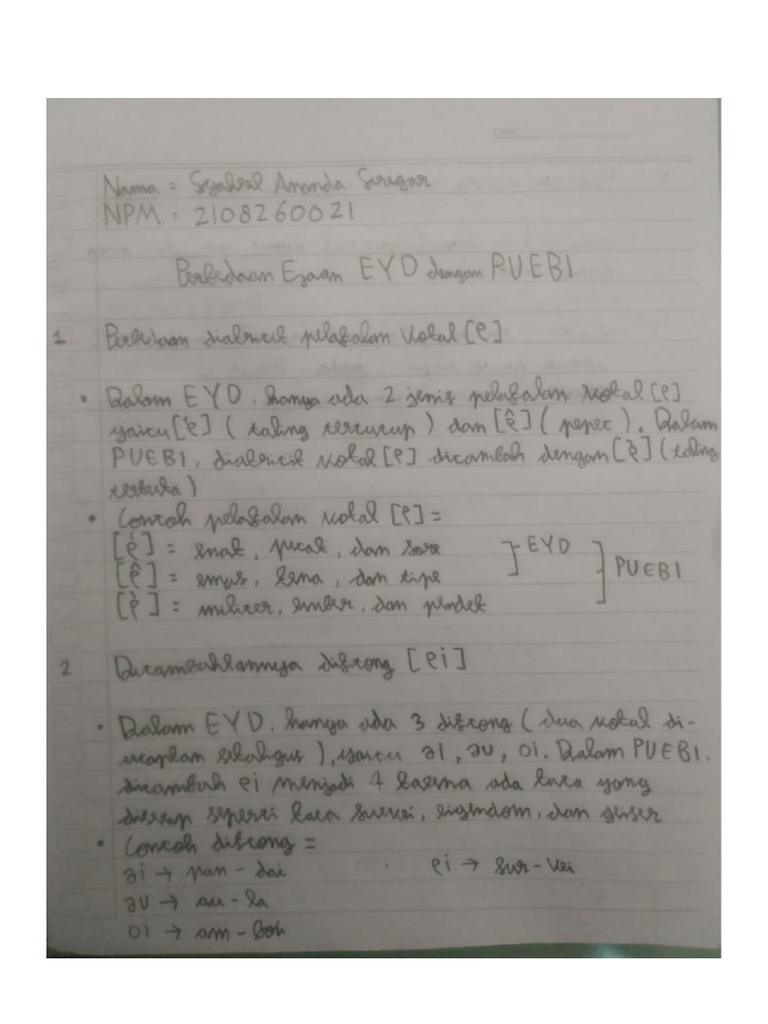 Date:
Nama = Syahral Ananda Siregar
NPM = 2108260021
Perbedaan Ejaan EYD dengan PUEBI
1 Perbedaan diakritik pelafalan vokal [e]
• Dalam EYD, hanya ada 2 jenis pelafalan vokal [e]
yaitu [é] (taling tertutup) dan [ê] (pepet). Dalam
PUEBI, diakritik vokal [e] ditambah dengan [è] (taling
terbuka)
• Contoh pelafalan vokal [e] =
[é] = enak, petak, dan sore ] EYD ] PUEBI
[ê] = emas, kena, dan tipe
[è] = militer, ember, dan pendek
2 Ditambahkannya diftong [ei]
• Dalam EYD, hanya ada 3 diftong (dua vokal di-
ucapkan sekaligus), yaitu ai, au, oi. Dalam PUEBI,
ditambah ei menjadi 4 karena ada kata yang
diserap seperti kata survei, eigendom, dan geiser
• Contoh diftong =
ai → pan - dai ei → sur - vei
au → au - la
oi → am - boi